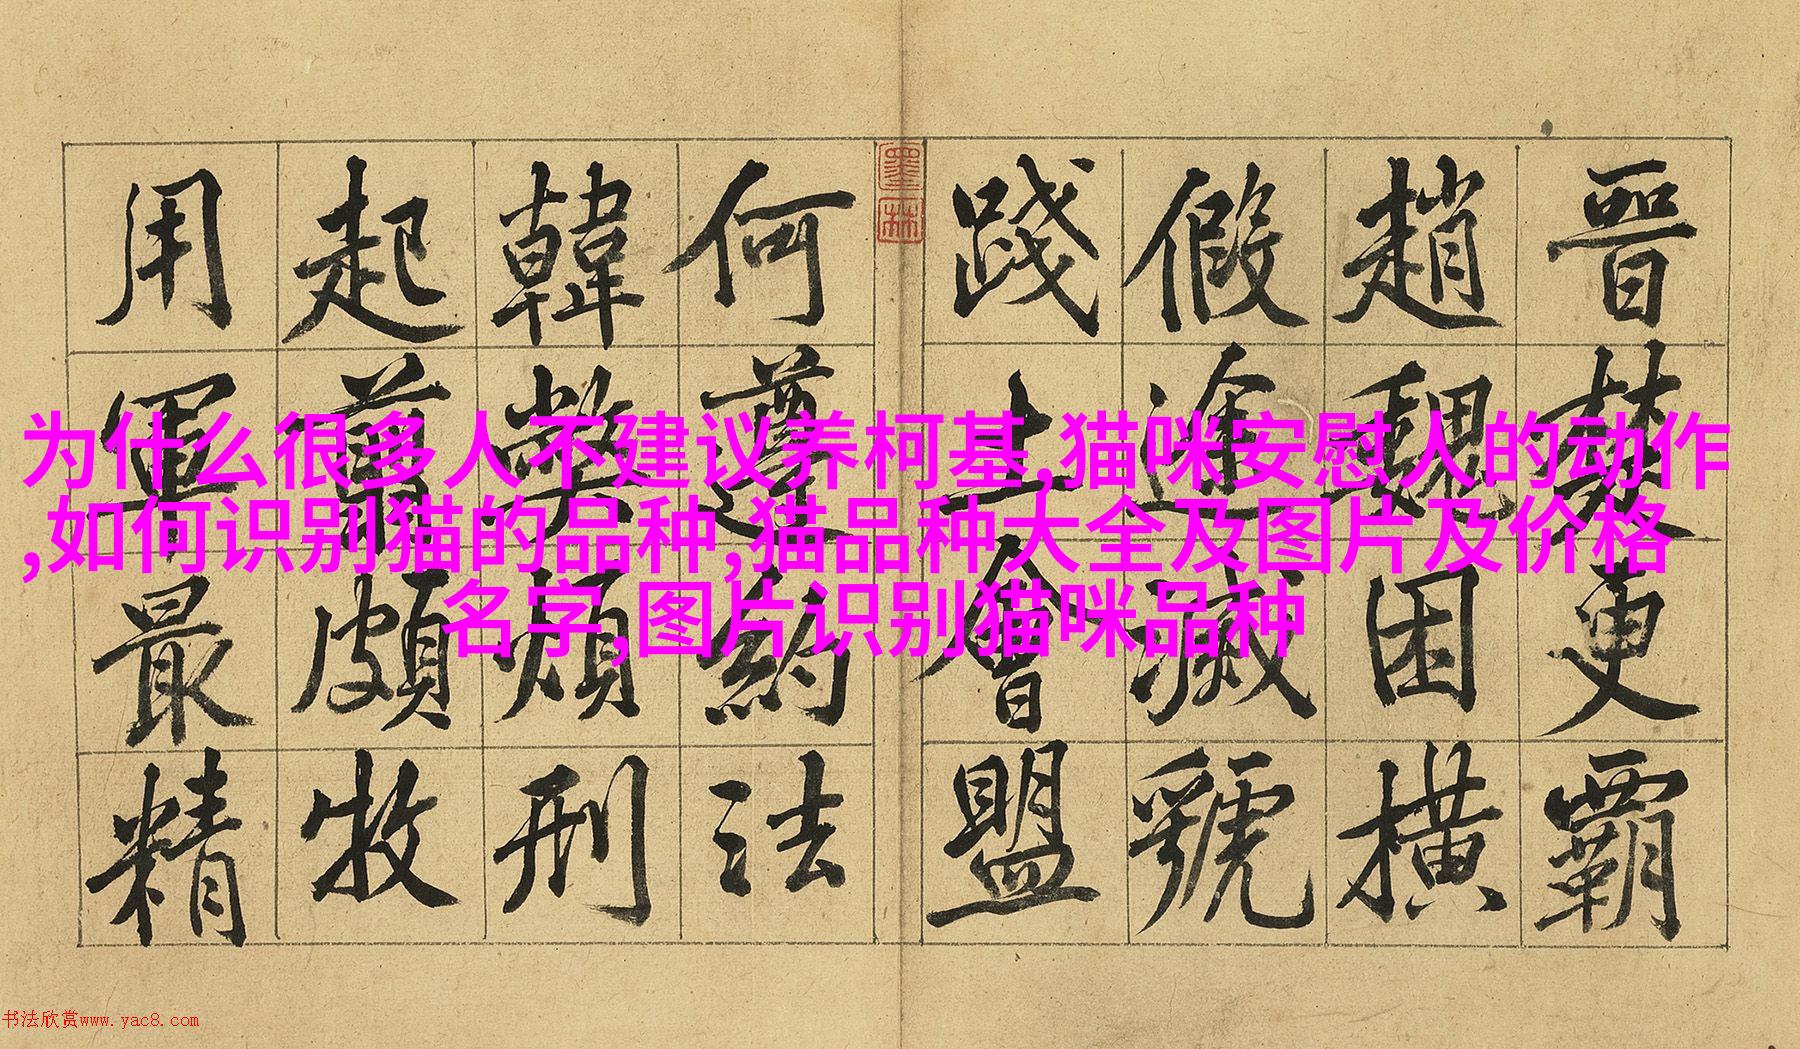 晉楚更霸
趙魏困橫
假途滅虢
踐土會盟
何遵約法
韓弊煩刑
起翦頗牧
用軍最精
墨林
为什么很多人不建议养柯基,猫咪安慰人的动作
,如何识别猫的品种,猫品种大全及图片及价格
名字,图片识别猫咪品种
书法欣赏www.yac8.com